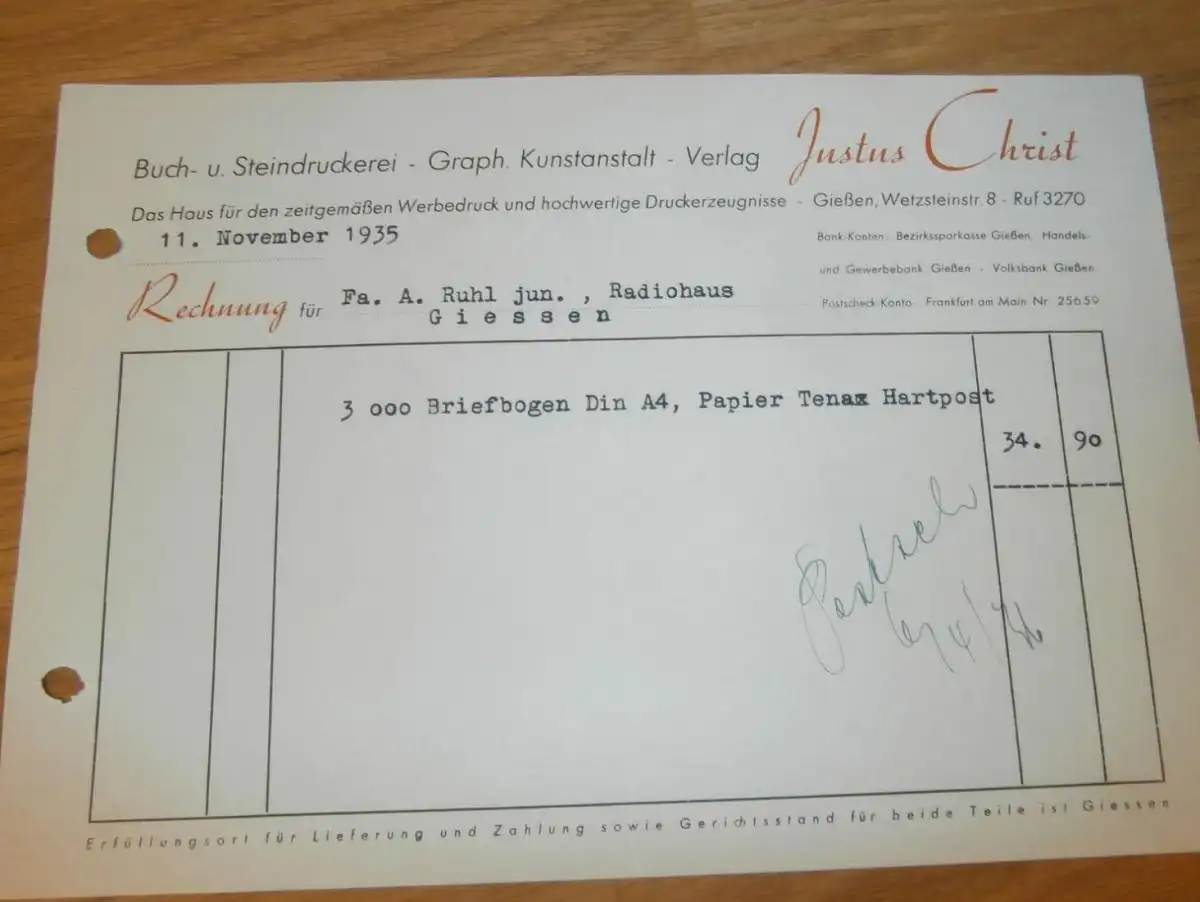 Justus Christ
Buch- u. Steindruckerei - Graph. Kunstanstalt - Verlag
Das Haus für den zeitgemäßen Werbedruck und hochwertige Druckerzeugnisse - Gießen, Wetzsteinstr. 8 - Ruf 3270
11. November 1935
Bank-Konten: Bezirkssparkasse Gießen, Handels-
und Gewerbebank Gießen - Volksbank Gießen
Postscheck-Konto Frankfurt am Main Nr 25659
Rechnung für Fa. A. Ruhl jun. , Radiohaus
Giessen
3 000 Briefbogen Din A4, Papier Tenax Hartpost
34. 90
Erfüllungsort für Lieferung und Zahlung sowie Gerichtsstand für beide Teile ist Giessen